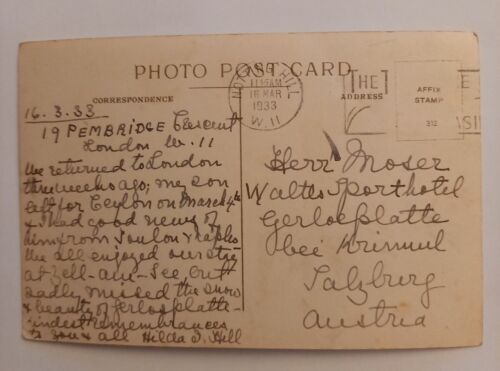 PHOTO POST CARD
CORRESPONDENCE
THE
ADDRESS
NOTTING HILL
11 15AM
16 MAR
1933
W.11
AFFIX
STAMP
312
16.3.33
19 PEMBRIDGE Crescent
London W. 11
We returned to London
three weeks ago; my son
left for Ceylon on March 4th
& I had good news of
him from Toulon & Naples
We all enjoyed our stay
at Zell-am-See, but
sadly missed the snow
& beauty of Gerlosplatte
Kindest Remembrances
to you & all Hilda S. Hill
Herr Moser
Walter Sporthotel
Gerlosplatte
bei Krimml
Salzburg
Austria